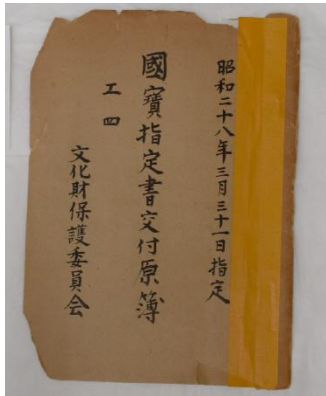 昭和二十八年三月三十一日指定
國寳指定書交付原簿
工四
文化財保護委員会